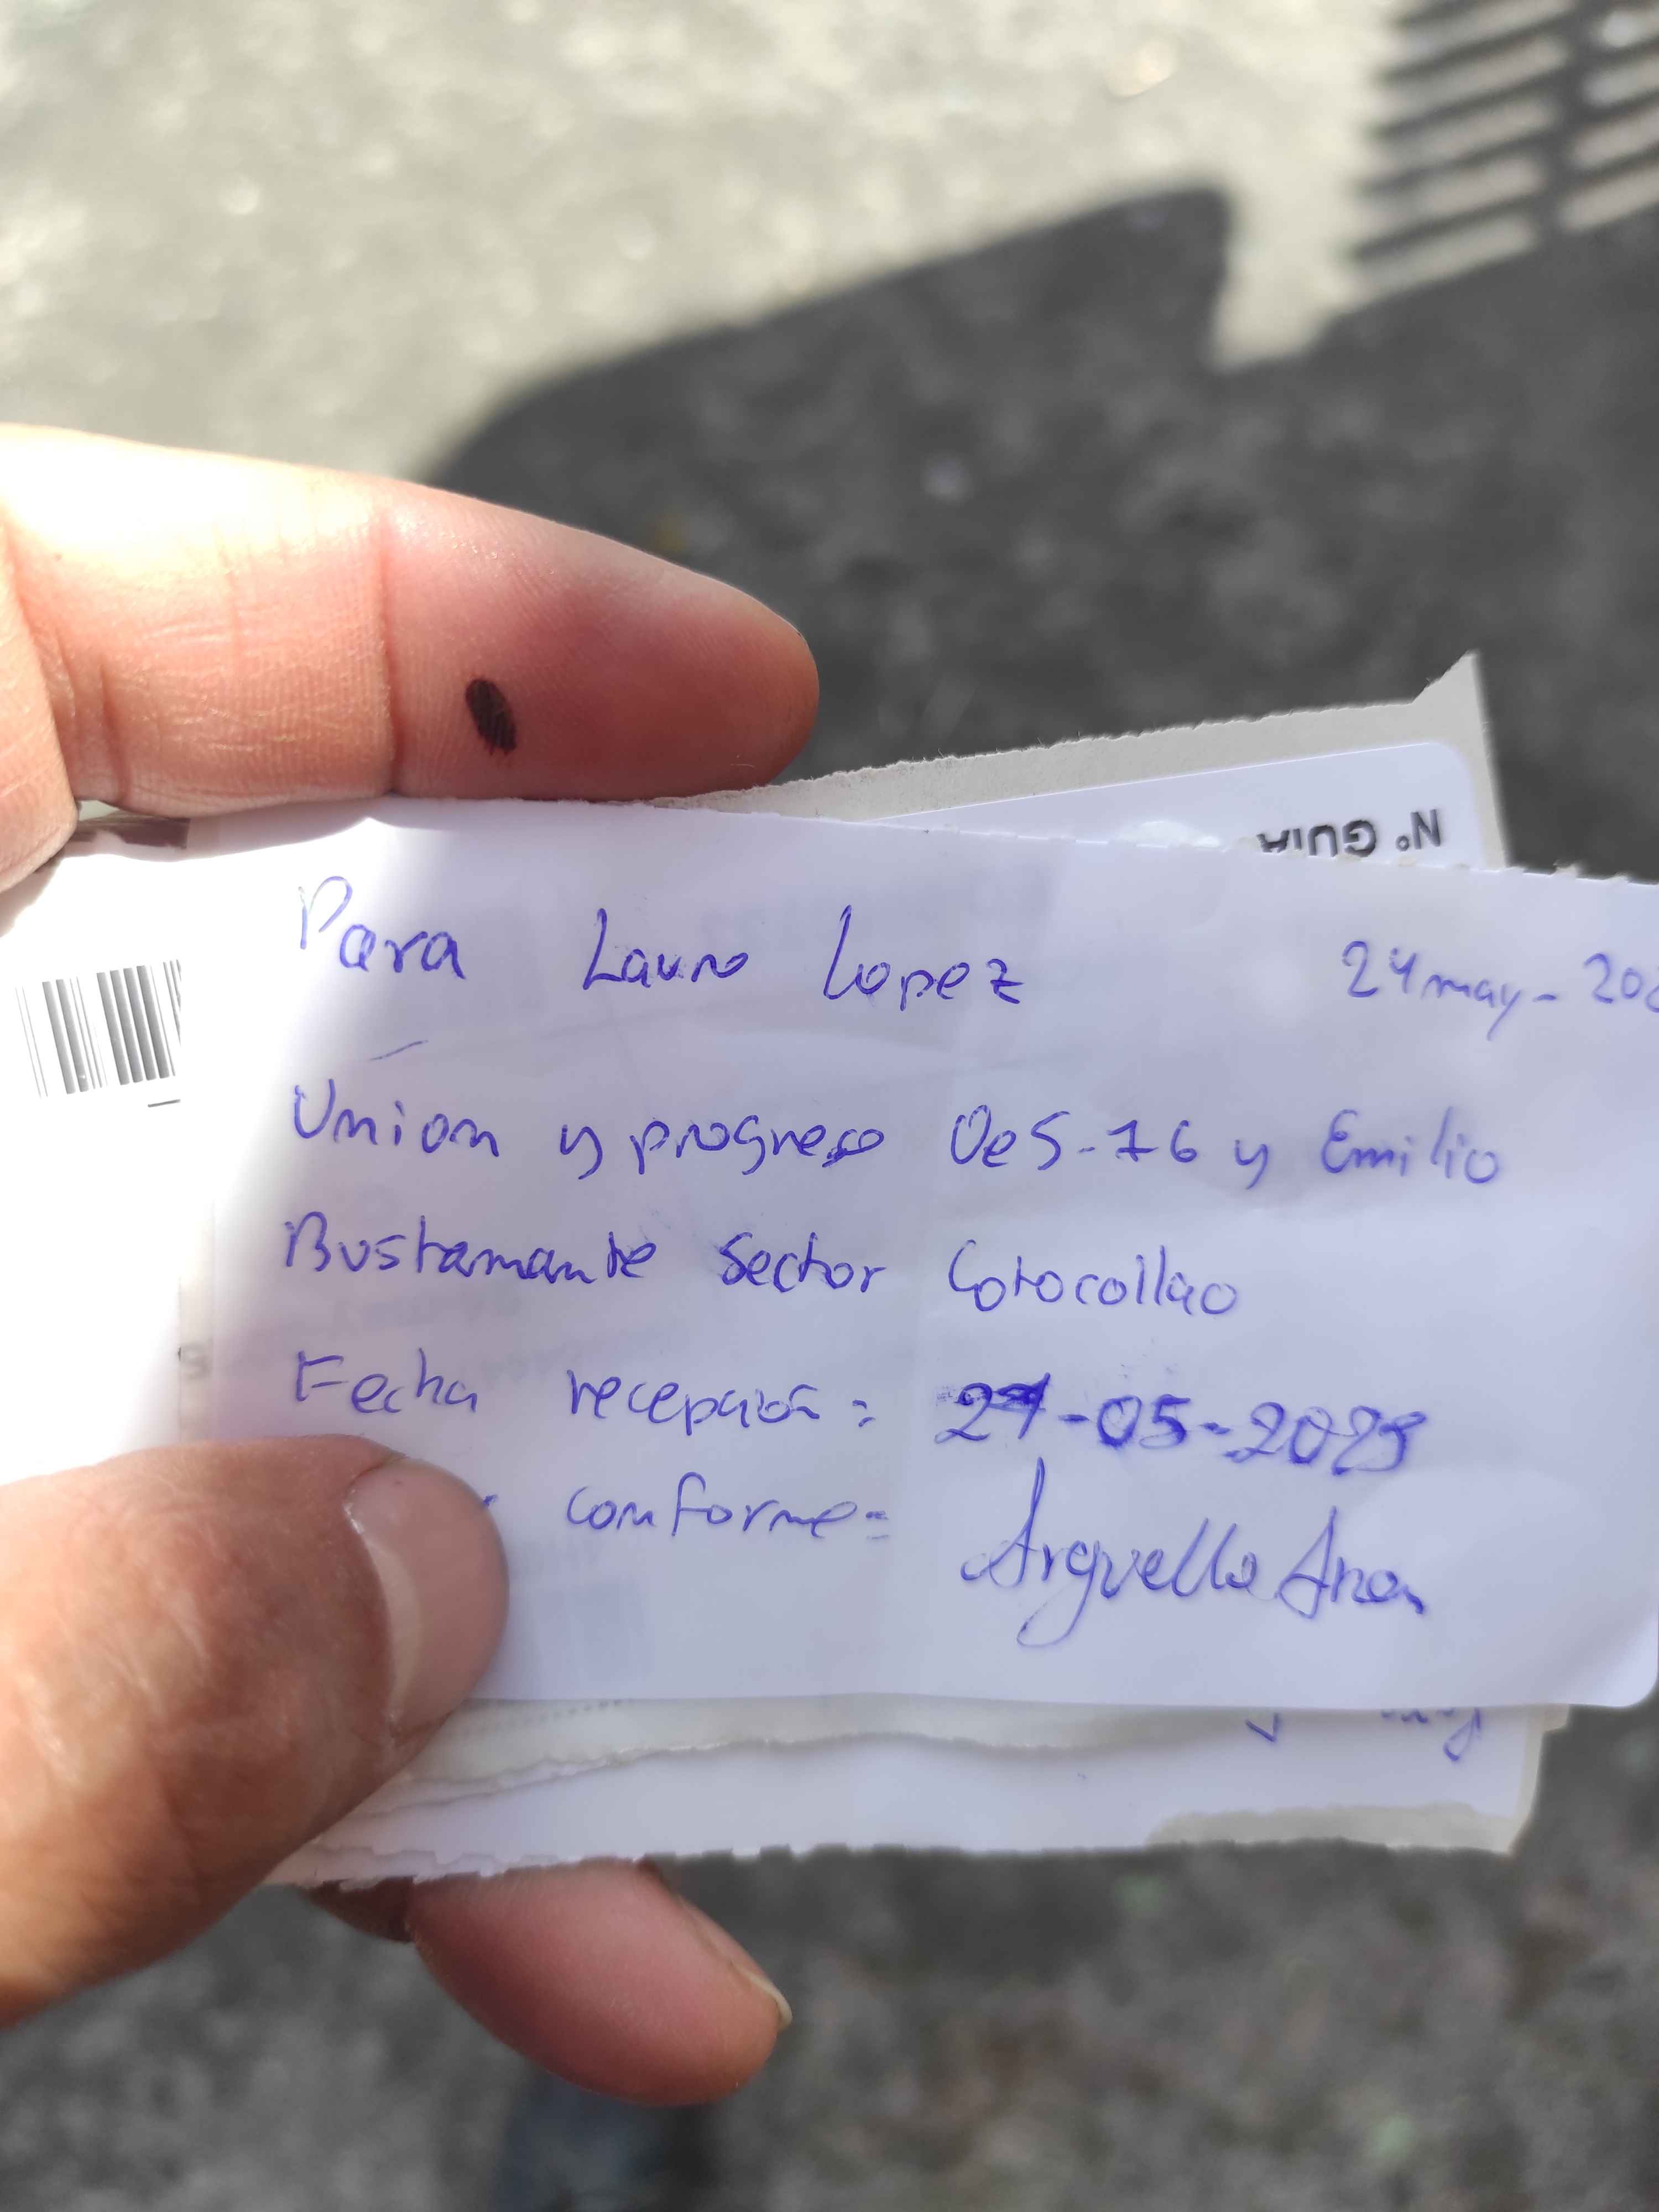 Nº GUIA
Para Lauro Lopez 24 may - 202
Union y progreso Oe5-76 y Emilio
Bustamante Sector Cotocollao
Fecha recepción: -05-2025
conforme= Arguello Ana